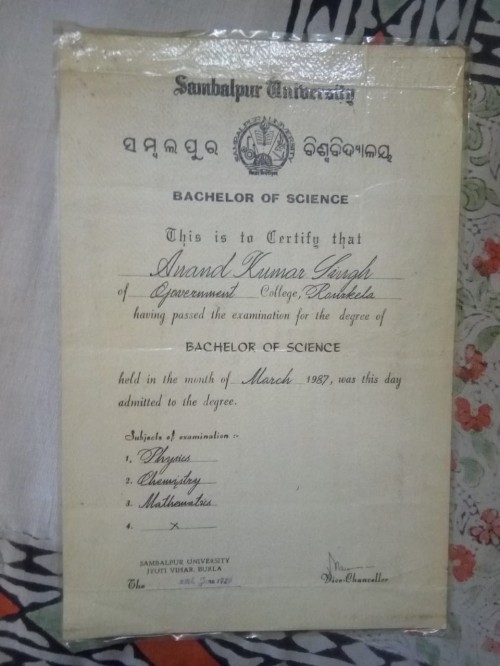 Sambalpur University
ସମ୍ବଲପୁର ବିଶ୍ୱବିଦ୍ୟାଳୟ
BACHELOR OF SCIENCE
This is to Certify that
Anand Kumar Singh
of Government College, Rourkela
having passed the examination for the degree of
BACHELOR OF SCIENCE
held in the month of March 1987, was this day
admitted to the degree.
Subjects of examination :-
1. Physics
2. Chemistry
3. Mathematics
4. x
SAMBALPUR UNIVERSITY
JYOTI VIHAR, BURLA
The
Vice-Chancellor